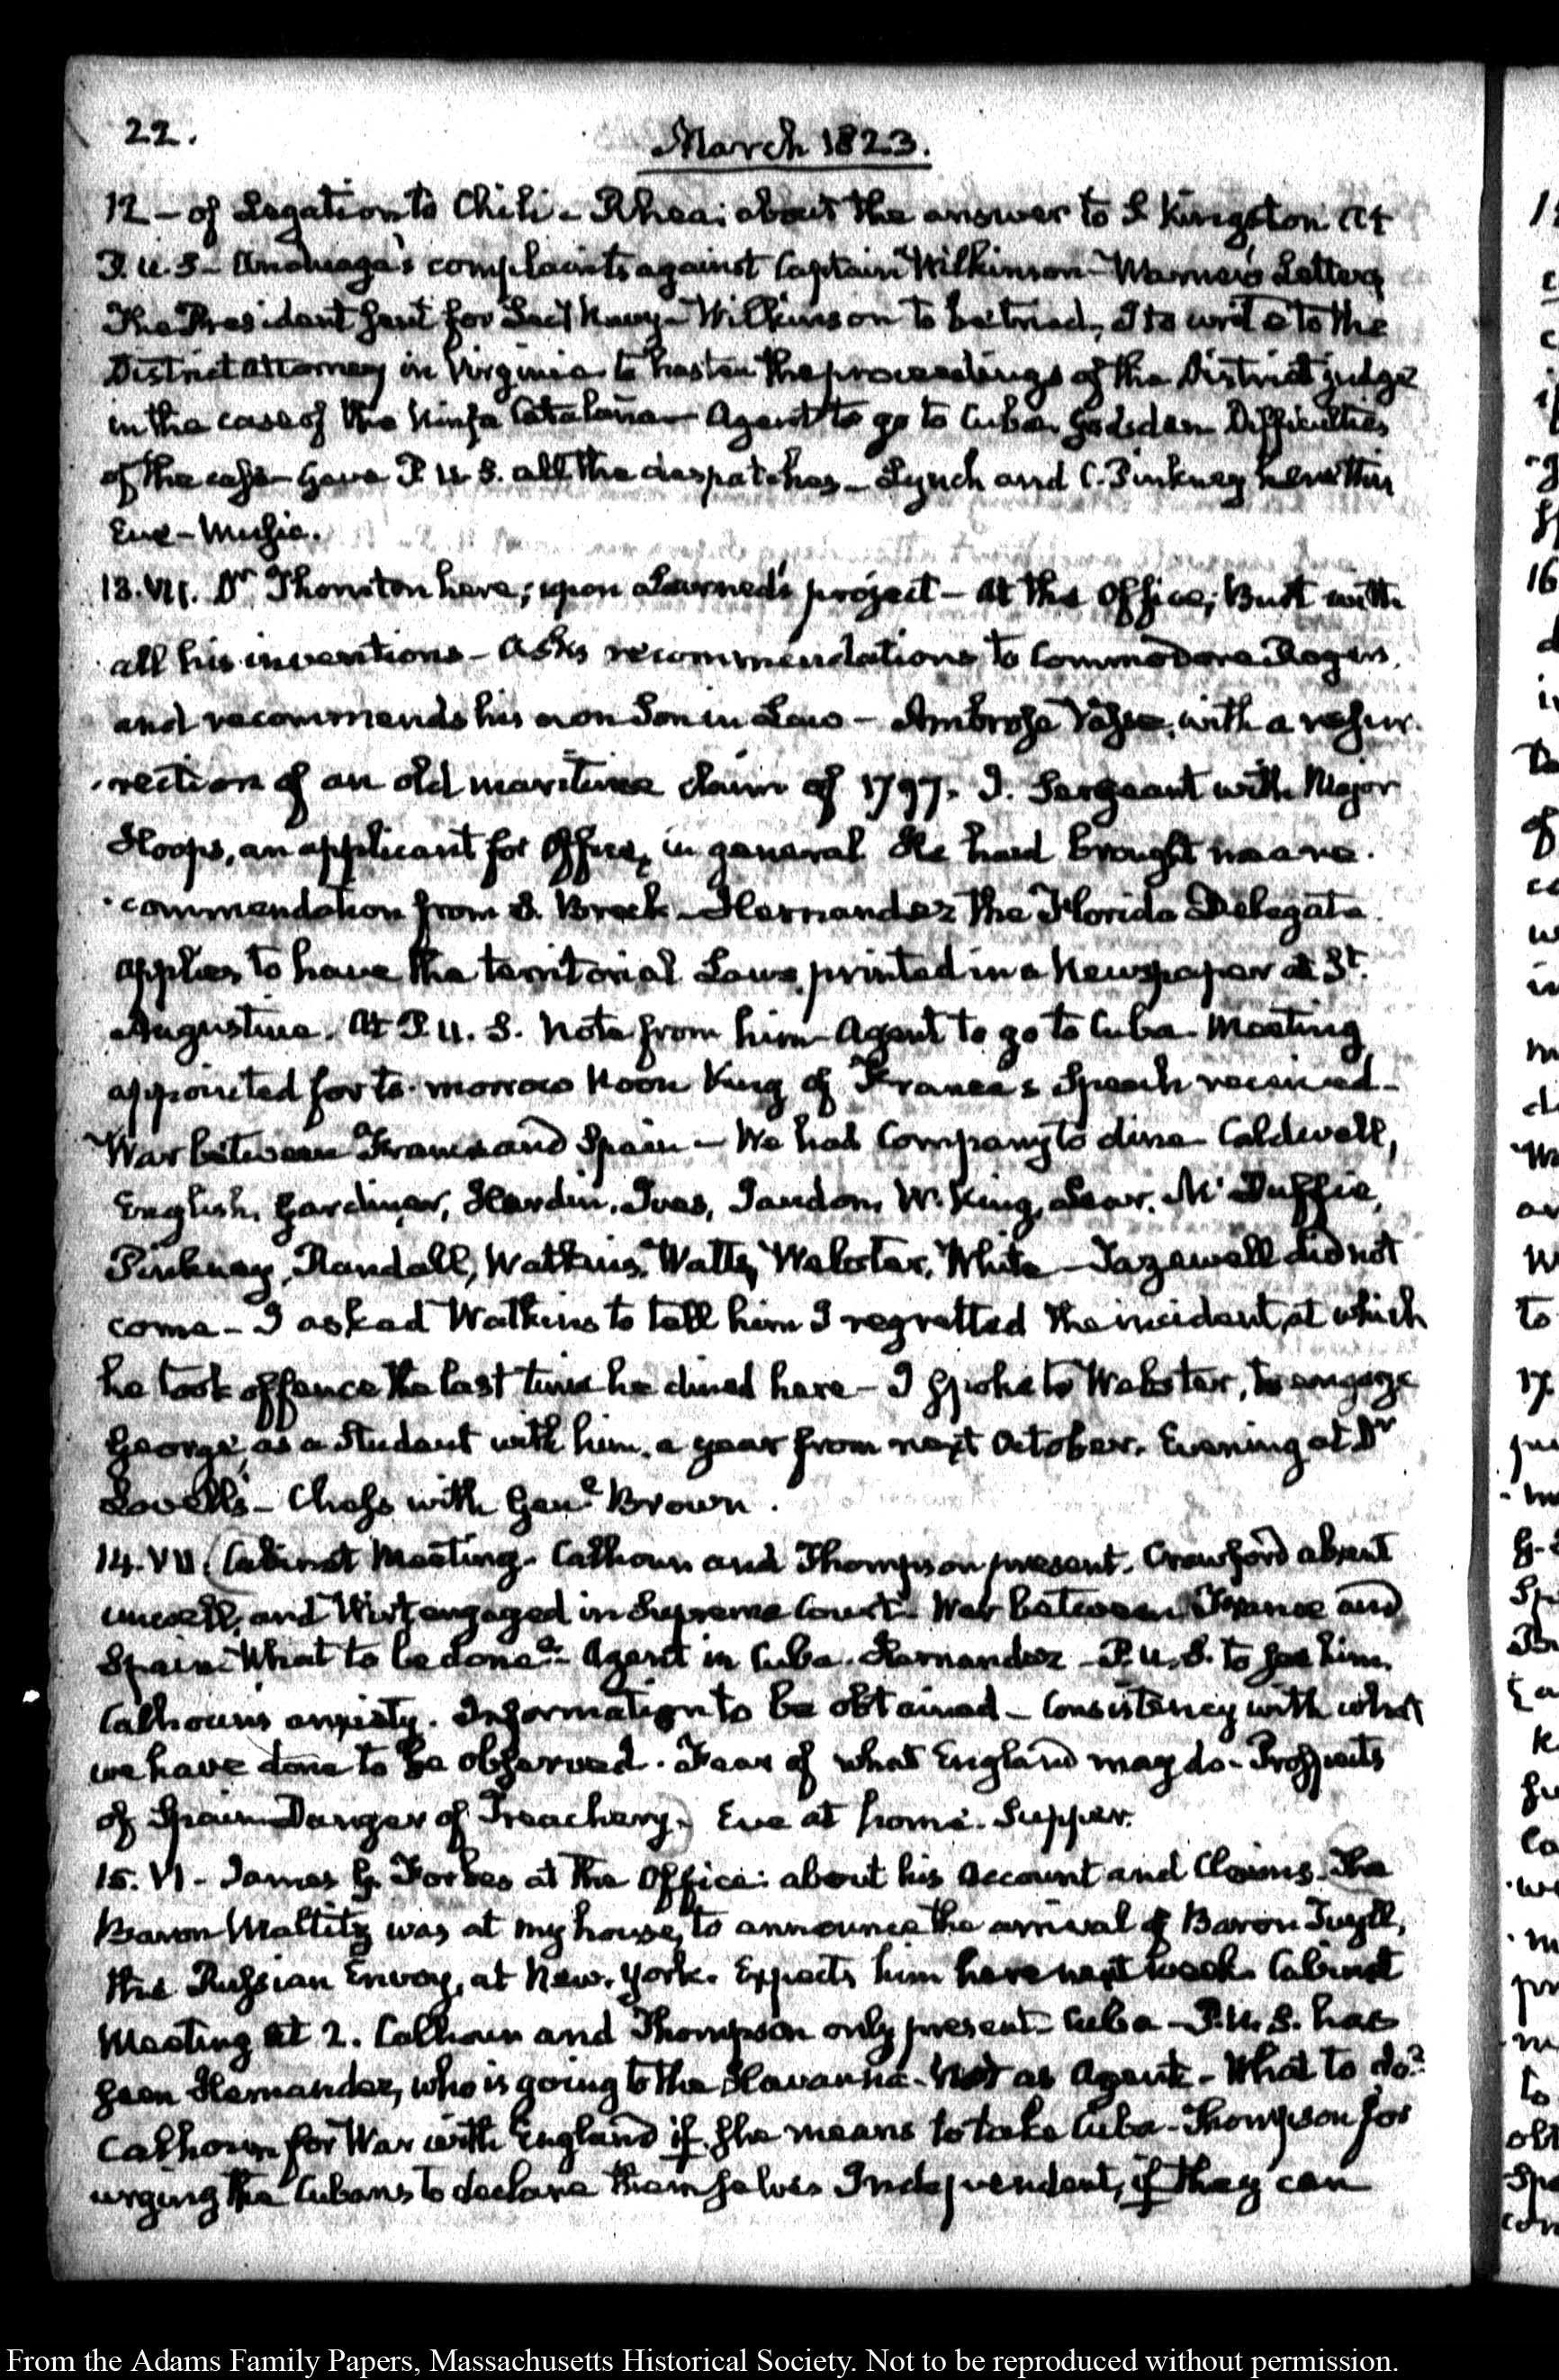 22.
March 1823.
12 – of Legation to Chili – Rhea; about the answer to S. Kingston. At
P. U. S – Anduaga's complaints against Captain Wilkinson – Warner's Letters
The President sent for Secy Navy – Wilkinson to be tried, I to write to the
District Attorney in Virginia to hasten the proceedings of the District judge
in the case of the Ninfa Catalana – Agent to go to Cuba, Gadsden Difficulties
of the case – Gave P. U. S. all the despatches – Lynch and C. Pinkney here this
Eve – Music.
13. VII. Dr Thornton here; upon Learned's project – At the Office; Burt with
all his inventions – Asks recommendations to Commodore Rogers,
and recommends his own Son in Law – Ambrose Vasse, with a resur-
rection of an old maritime claim of 1797. J. Sergeant with Major
Hoops, an applicant for Office, in general He had brought me a re-
commendation from S. Breck – Hernandez the Florida Delegate
applies to have the territorial Laws printed in a Newspaper at St.
Augustine. At P. U. S. Note from him – Agent to go to Cuba – Meeting
appointed for to-morrow Noon King of France's Speech received –
War between France and Spain – We had Company to dine – Caldwell,
English, Gardiner, Hardin, Ives, Jaudon, W. King, Lear, McDuffie,
Pinkney, Randall, Watkins, Watts, Webster, White – Tazewell did not
come – I asked Watkins to tell him I regretted the incident, at which
he took offence the last time he dined here – I spoke to Webster, to engage
George, as a Student with him, a year from next October. Evening at Dr
Lovell's – Chess with Genl Brown.
14. VII. Cabinet Meeting. Calhoun and Thompson present. Crawford absent
unwell, and Wirt engaged in Supreme Court – War between France and
Spain – What to be done? – Agent in Cuba. Hernandez – P. U. S. to see him.
Calhoun's anxiety. Information to be obtained – Consistency with what
we have done to be observed. Fear of what England may do – Prospects
of Spain – Danger of Treachery. Eve at home. Supper.
15. VI – James G. Forbes at the Office: about his Account and Claims. The
Baron Maltitz was at my house, to announce the arrival of Baron Tuyll,
the Russian Envoy, at New-York. Expects him here next week. Cabinet
Meeting at 2. Calhoun and Thompson only present – Cuba – P. U. S. has
seen Hernandez, who is going to the Havanna – Not as Agent – What to do?
Calhoun for War with England if she means to take Cuba – Thompson for
urging the Cubans to declare themselves Independent, if they can
From the Adams Family Papers, Massachusetts Historical Society. Not to be reproduced without permission.